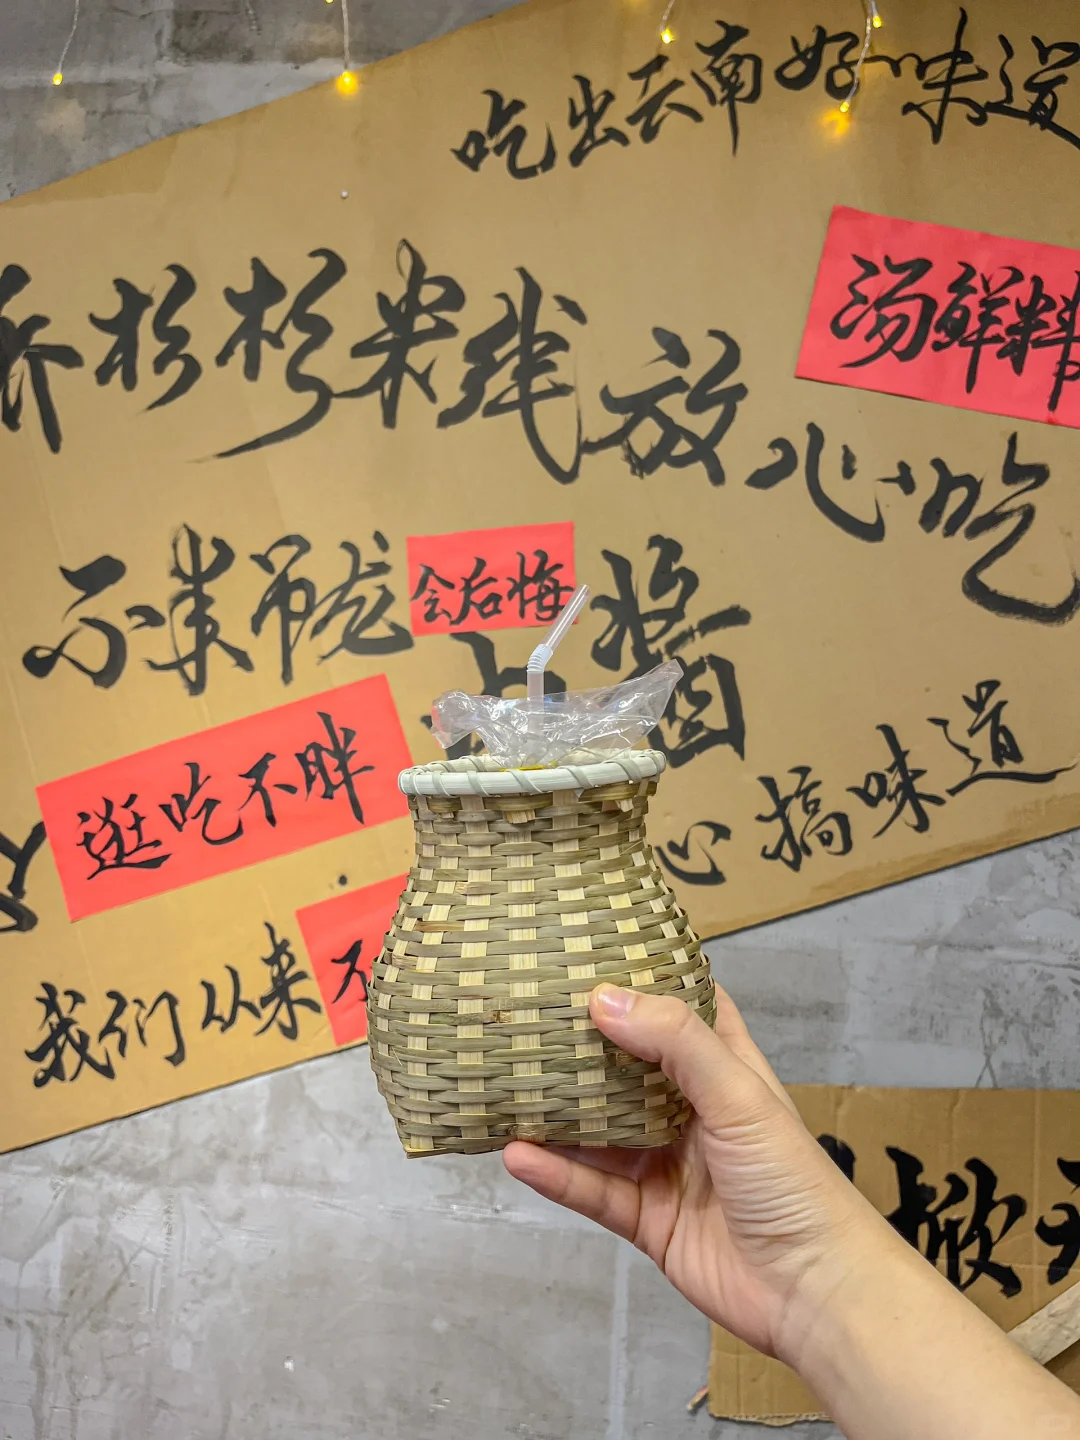 吃出云南好味道
乔杉杉米线放心吃
汤鲜料
不来吊龙会后悔
酱
逛吃不胖
心搞味道
我们从来不
掀开